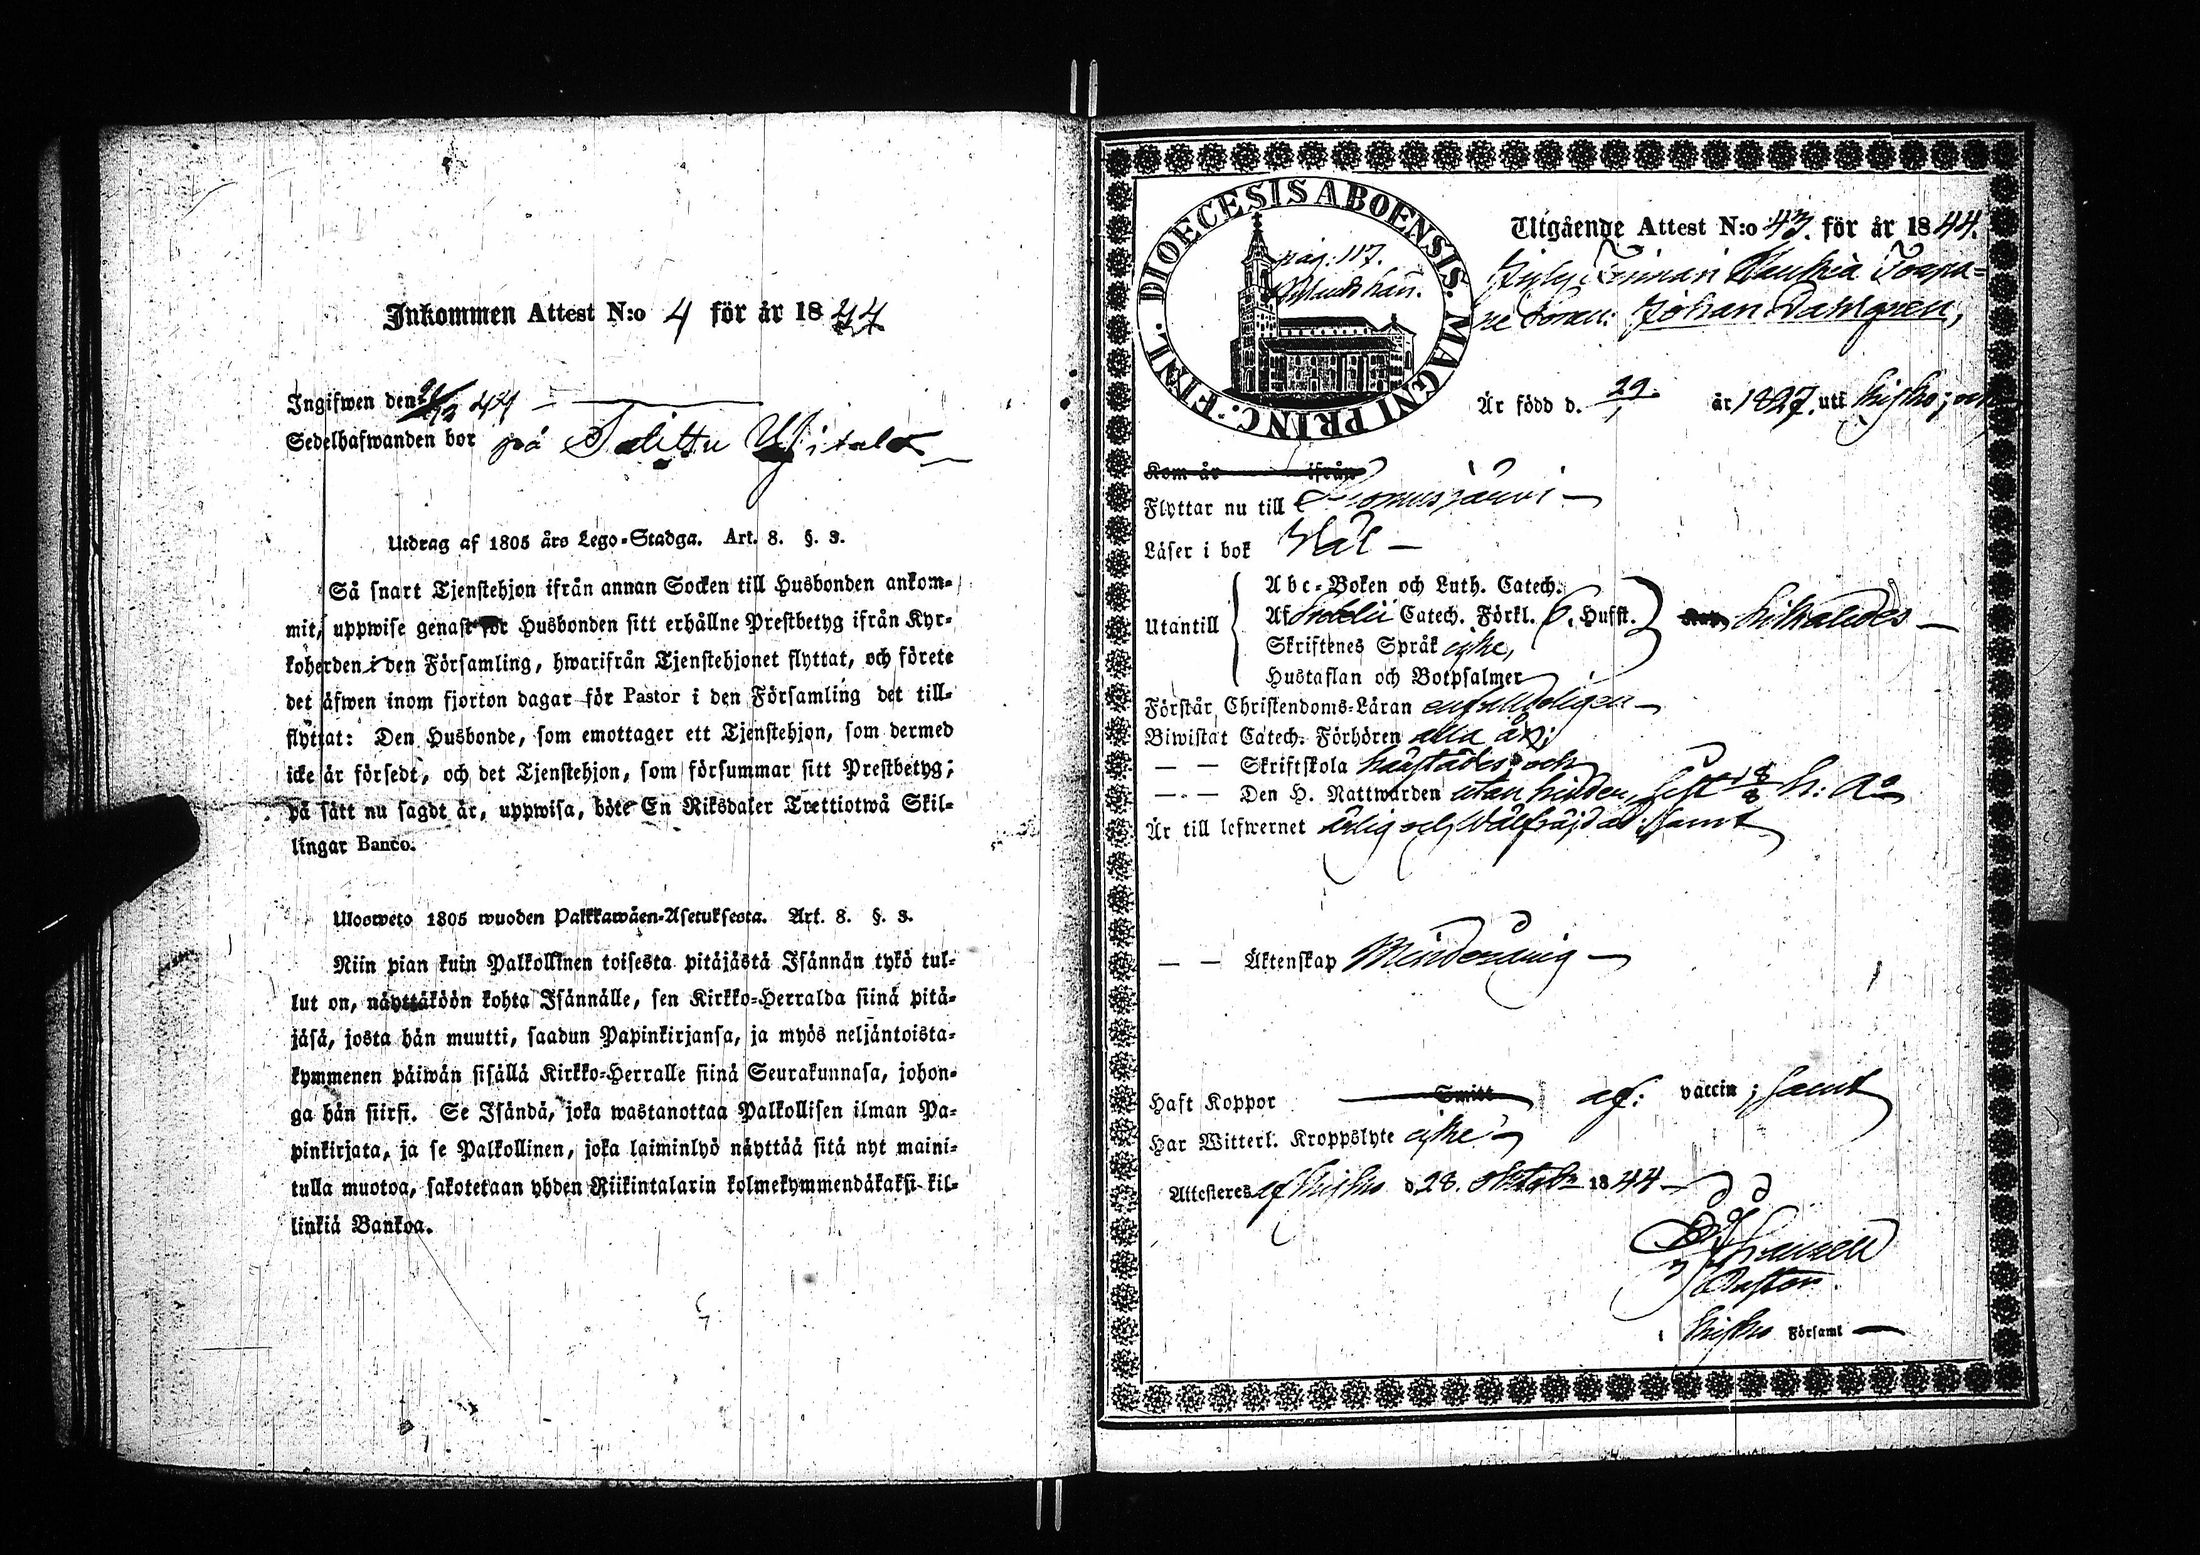 Inkommen Attest N:o 4 för år 1844
Ingifwen den 44
Sedelhafwanden bor på
Utdrag af 1805 års Lego-Stadga. Art. 8. §. 3.
Så snart Tjenstehjon ifrån annan Socken till Husbonden ankom-
mit, uppwise genast för Husbonden sitt erhållne Prestbetyg ifrån Kyr-
koherden i den Församling, hwarifrån Tjenstehjonet flyttat, och förete
det äfwen inom fjorton dagar för Pastor i den Församling det till-
flyttat: Den Husbonde, som emottager ett Tjenstehjon, som dermed
icke är försedt, och det Tjenstehjon, som försummar sitt Prestbetyg;
på sätt nu sagdt är, uppwisa, böte En Riksdaler Trettiotwå Skil-
lingar Banco.
Ulosweto 1805 wuoden Palkkawäen-Asetuksesta. Art. 8. §. 3.
Niin pian kuin Palkollinen toisesta pitäjästä Isännän tykö tul-
lut on, näyttäköön kohta Isännälle, sen Kirkko-Herralda siinä pitä-
jäsä, josta hän muutti, saadun Papinkirjansa, ja myös neljäntoista-
kymmenen päiwän sisällä Kirkko-Herralle siinä Seurakunnasa, johon-
ga hän siirsi. Se Isändä, joka wastanottaa Palkollisen ilman Pa-
pinkirjata, ja se Palkollinen, joka laiminlyö näyttää sitä nyt maini-
tulla muotoa, sakotetaan yhden Riikintalarin kolmekymmendäkaksi kil-
linkiä Bankoa.
DIOECESIS ABOENSIS. MAGNI PRINC. FINL.
pag. 117.
Utgående Attest N:o 43. för år 1844.
Johan Dahlgren,
Är född d. 29/1 år 1827. uti Kisko; och
Kom år ifrån
Flyttar nu till
Läser i bok Wäl —
Utantill
Abc-Boken och Luth. Catech.
Af Svebelii Catech. Förkl. 6. Hufst.
Skriftenes Språk icke,
Hustaflan och Botpsalmer
Förstår Christendoms-Läran
Biwistat Catech. Förhören alla år;
— — Skriftskola och
— — Den H. Nattwarden utan hinder, sist 18/8 h: ao
Är till lefwernet ärlig och wälfräjdad; samt
— — Äktenskap Minderårig —
Haft Koppor Smitt af: vaccin; samt
Har Witterl. Kroppslyte icke —
Attesteres af Kisko d 28. Oktobr 1844 —
Pastor.
i Kisko Församl —